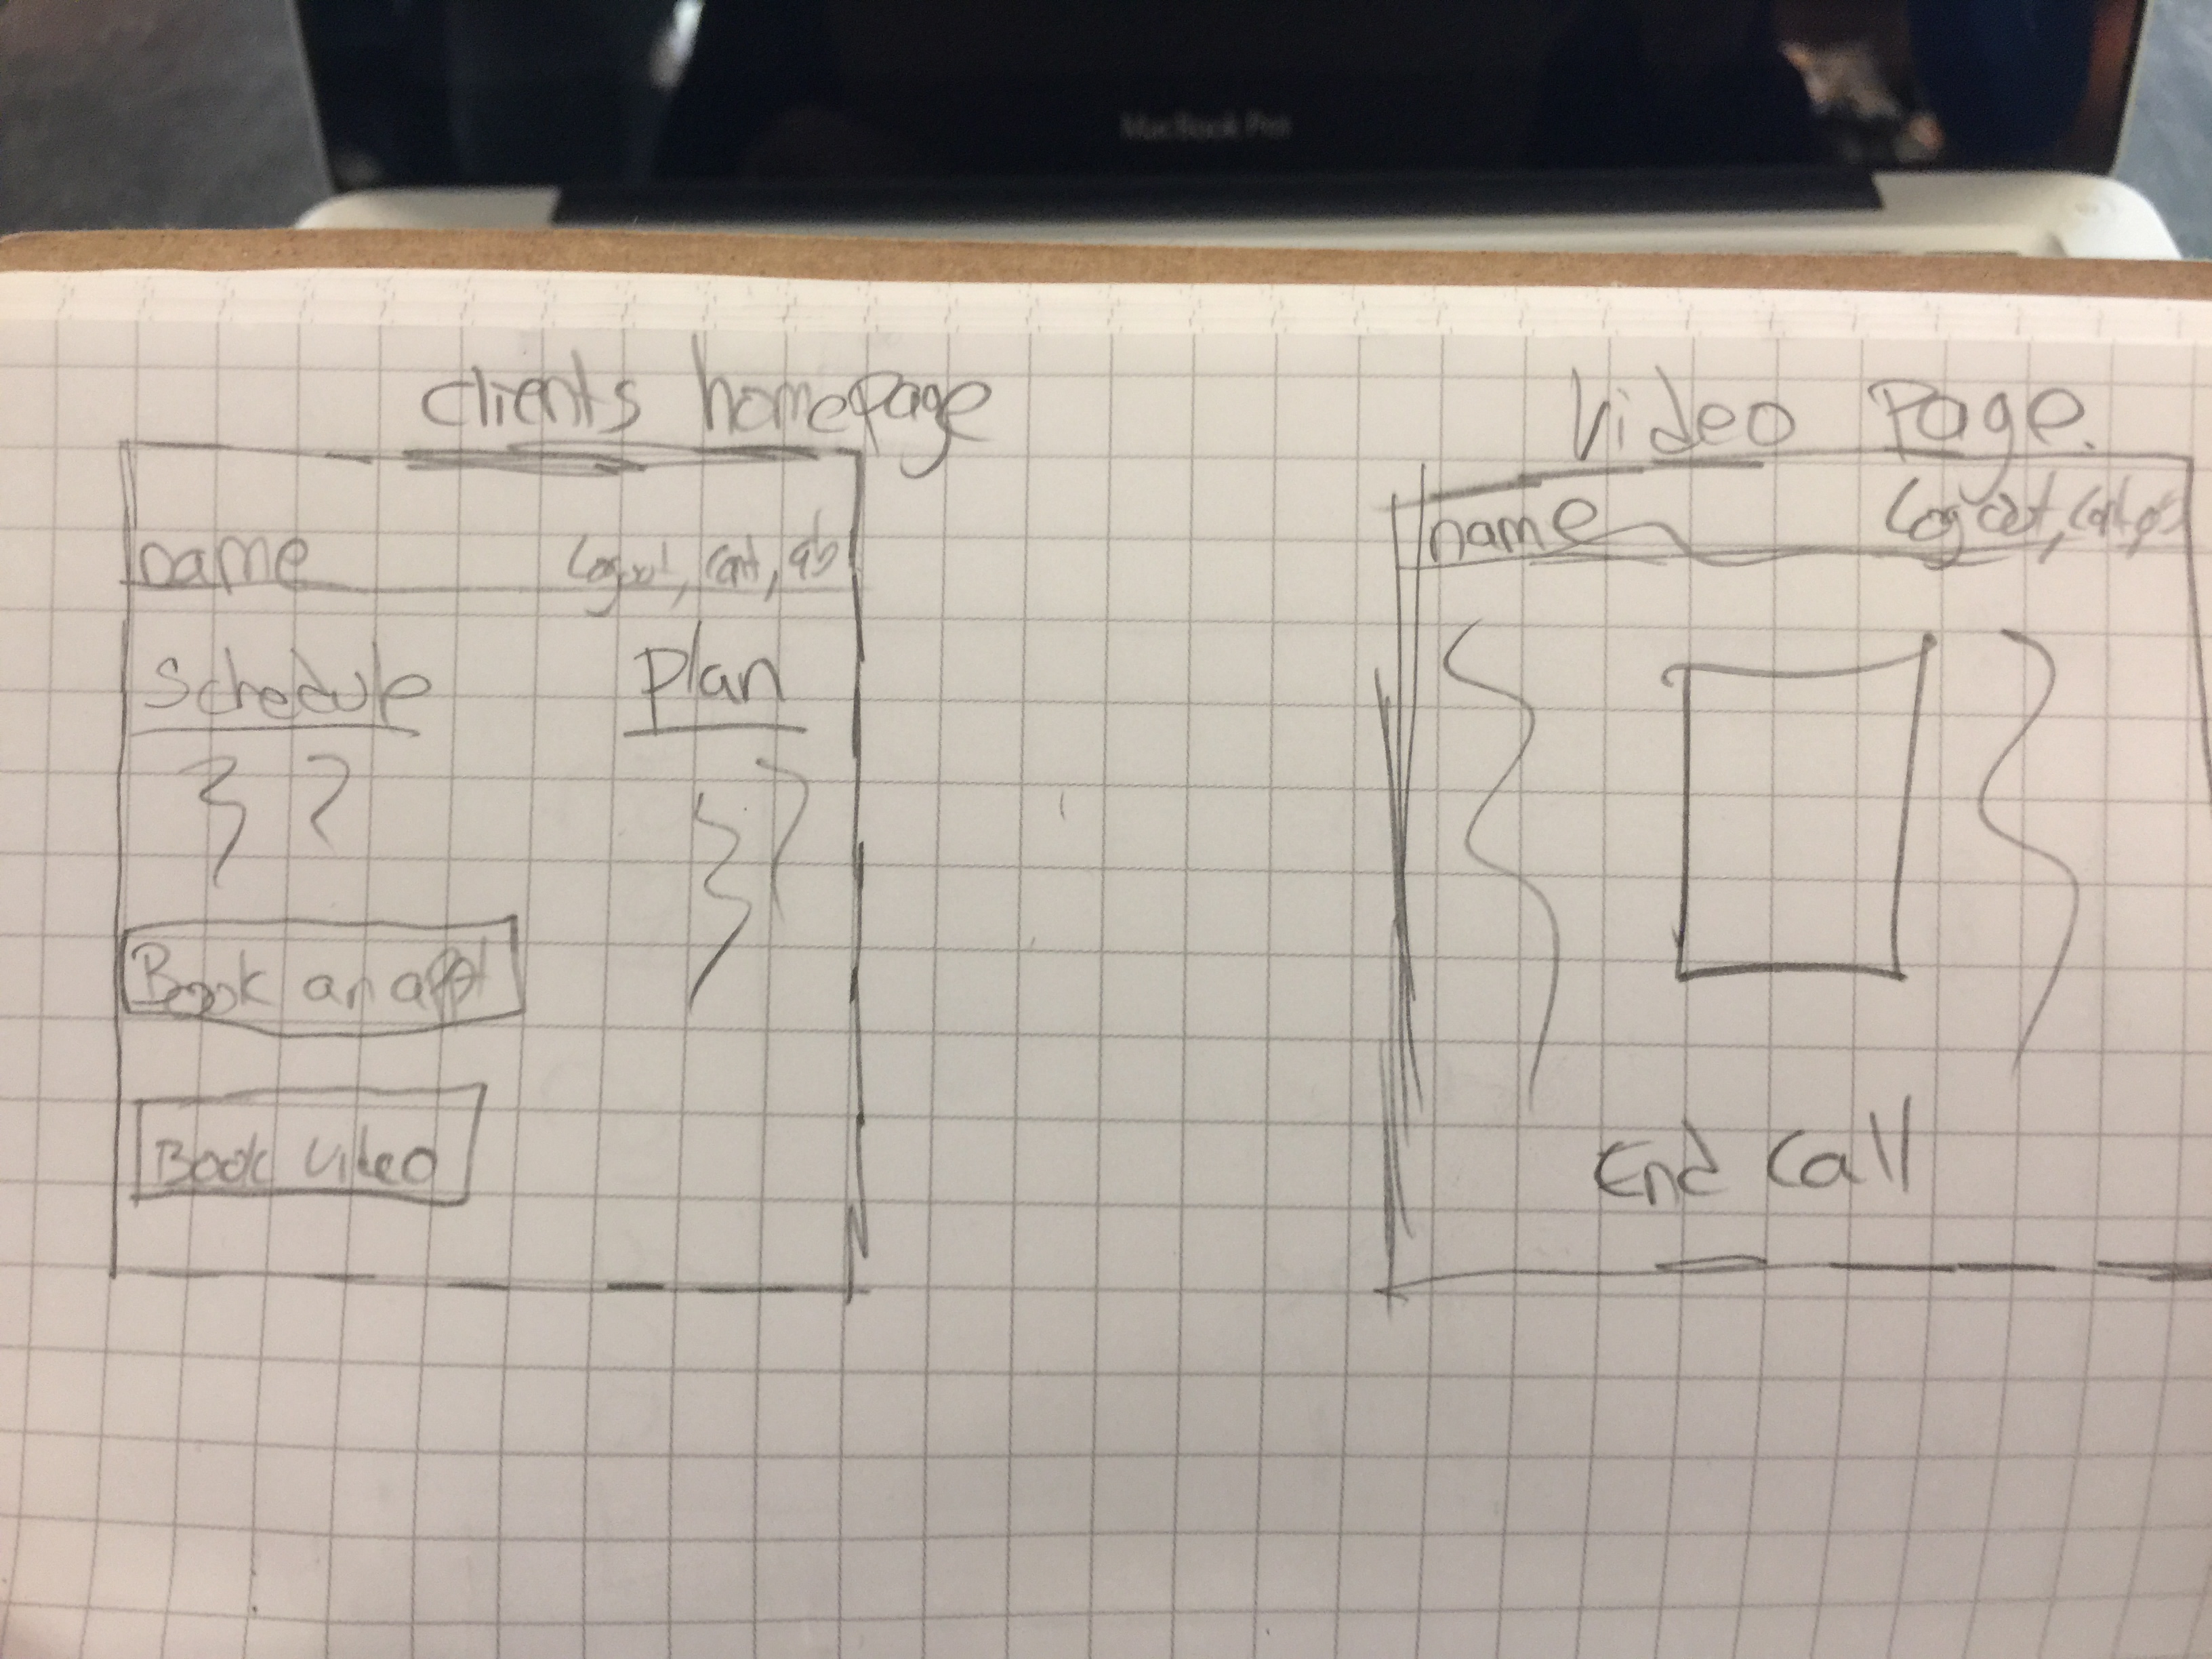 MacBook Pro
clients homepage
name Logout, cont, ab
Schedule Plan
Book an appt
Book video
Video Page.
name Log out, cont, ab
End Call